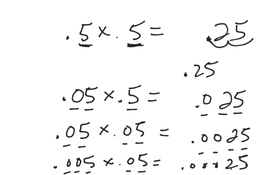 .5 × .5 = .25
.25
.05 × .5 = .025
.05 × .05 = .0025
.005 × .05 = .00025